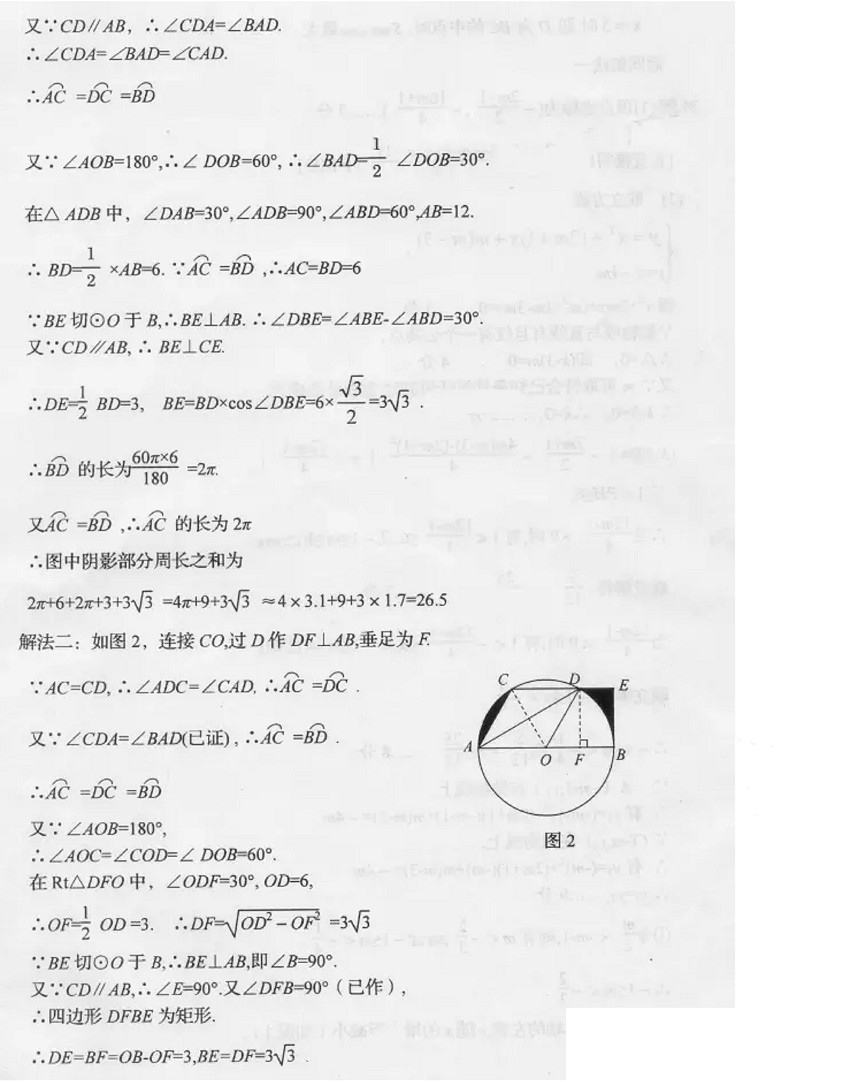 又∵CD∥AB，∴∠CDA=∠BAD.
∴∠CDA=∠BAD=∠CAD.
∴A͡C=D͡C=B͡D
又∵∠AOB=180°,∴∠DOB=60°, ∴∠BAD=1/2∠DOB=30°.
在△ADB中，∠DAB=30°,∠ADB=90°,∠ABD=60°,AB=12.
∴BD=1/2×AB=6. ∵A͡C=B͡D,∴AC=BD=6
∵BE切⊙O于B,∴BE⊥AB. ∴∠DBE=∠ABE-∠ABD=30°.
又∵CD∥AB, ∴BE⊥CE.
∴DE=1/2 BD=3, BE=BD×cos∠DBE=6×√3/2=3√3.
∴B͡D的长为60π×6/180=2π.
又A͡C=B͡D,∴A͡C的长为2π
∴图中阴影部分周长之和为
2π+6+2π+3+3√3=4π+9+3√3≈4×3.1+9+3×1.7=26.5
解法二：如图2，连接CO,过D作DF⊥AB,垂足为F.
∵AC=CD, ∴∠ADC=∠CAD, ∴A͡C=D͡C.
又∵∠CDA=∠BAD(已证), ∴A͡C=B͡D.
∴A͡C=D͡C=B͡D
又∵∠AOB=180°,
∴∠AOC=∠COD=∠DOB=60°.
在Rt△DFO中，∠ODF=30°, OD=6,
∴OF=1/2 OD=3. ∴DF=√(OD²-OF²)=3√3
∵BE切⊙O于B,∴BE⊥AB,即∠B=90°.
又∵CD∥AB,∴∠E=90°.又∠DFB=90°（已作）,
∴四边形DFBE为矩形.
∴DE=BF=OB-OF=3,BE=DF=3√3.
C D E
A O F B
图2